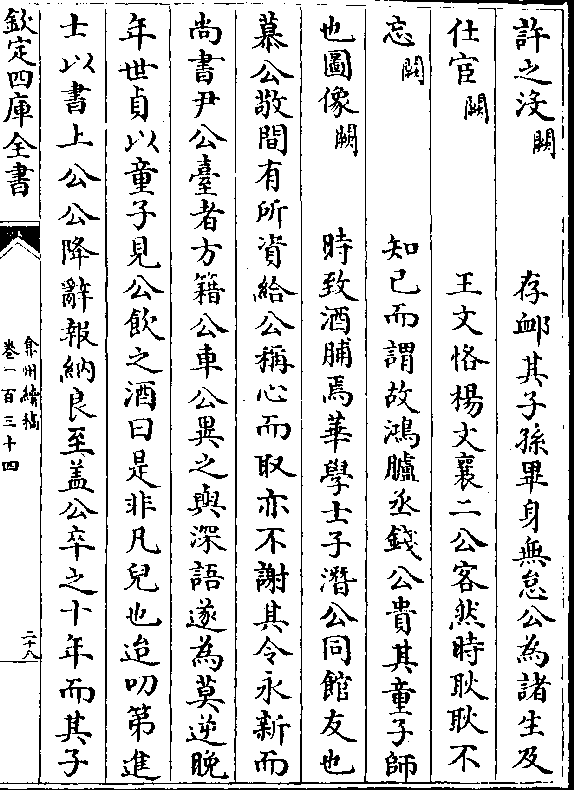 許之沒闕　　　存邺其子孫畢身無怠公為諸生及
仕宦闕　　　　王文恪楊文襄二公客然時耿耿不
忘闕　　　　知已而謂故鴻臚丞錢公貴其童子師
也圖像闕　　　時致酒脯焉華學士子潛公同館友也
慕公敬間有所資給公稱心而取亦不謝其令永新而
尚書尹公臺者方籍公車公異之與深語遂為莫逆晚
年世貞以童子見公飲之酒曰是非凡兒也迨叨第進
士以書上公公降辭報納良至盖公卒之十年而其子
欽定四庫全書
弇州續稿
卷一百三十四
二十八